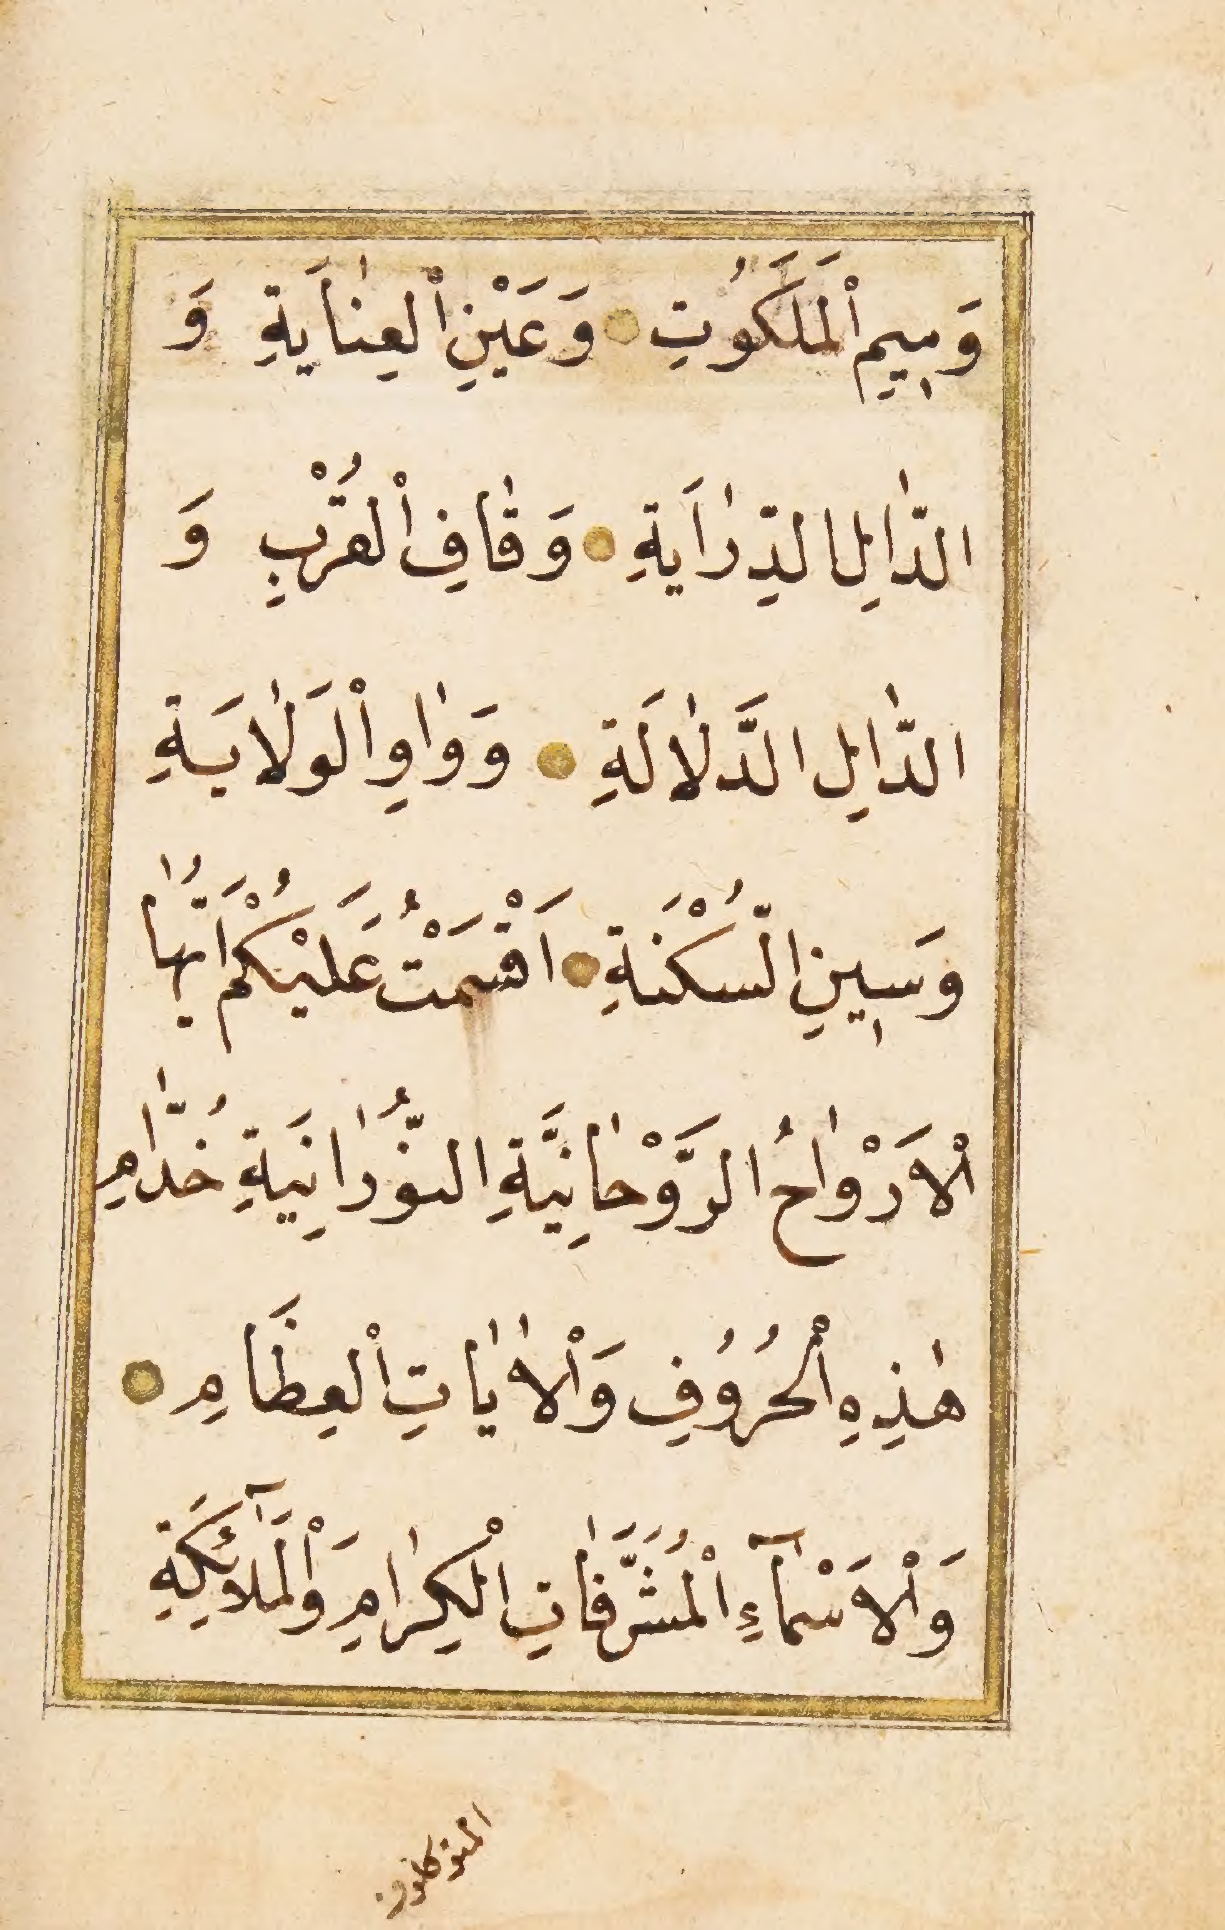 وَمِيمِ اْلمَلَكَُوتِ وَعَيْنِ اْلعِنٰايَةِ وَ
الدّٰالِ الدِّرٰايَةِ وَقٰافِ اْلقُرْبِ وَ
الدّٰالِ الدَّلٰالَةِ وَوٰاوِ اْلوَلٰايَةِ
وَسِينِ السُّكْنَةِ اَقْسَمْتُ عَلَيْكُمْ اَيُّهَا
اْلاَرْوٰاحُ الرَّوْحٰانِيَّةِ النُّورٰانِيَةِ خُدّٰامِ
هٰذِهِ اْلحُرُوُفِ وَاْلاٰيٰاتِ اْلعِظَامِ
وَاْلاَسْمٰآءِ اْلمُشَرَّفٰاتِ اْلكِرٰامِ وَاْلمَلَآئِكَةِ
المتوكلون